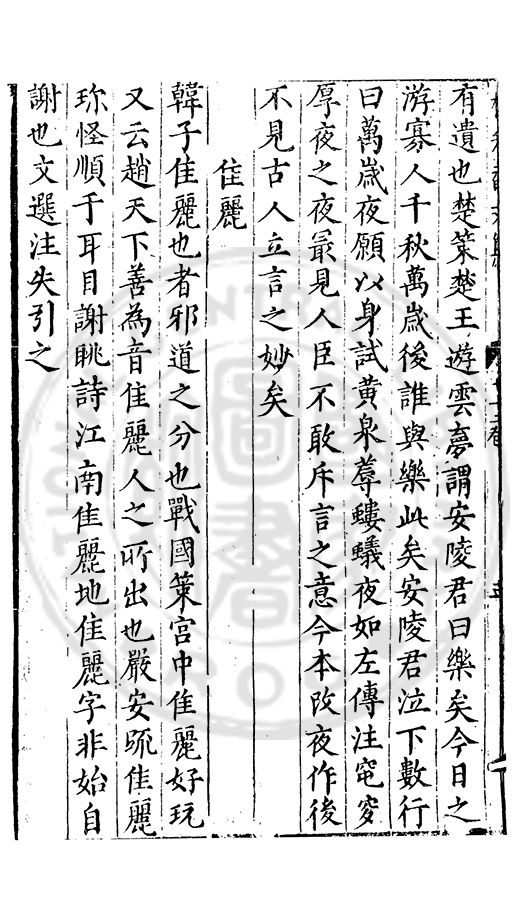 有遺也楚策楚王遊雲夢謂安陵君曰樂矣今日之
游寡人千秋萬歲後誰與樂此矣安陵君泣下數行
曰萬歲夜願以身試黃泉蓐螻蟻夜如左傳注窀穸
厚夜之夜最見人臣不敢斥言之意今本改夜作後
不見古人立言之妙矣
佳麗
韓子佳麗也者邪道之分也戰國策宮中佳麗好玩
又云趙天下善為音佳麗人之所出也嚴安疏佳麗
珎怪順于耳目謝朓詩江南佳麗地佳麗字非始自
謝也文選注失引之